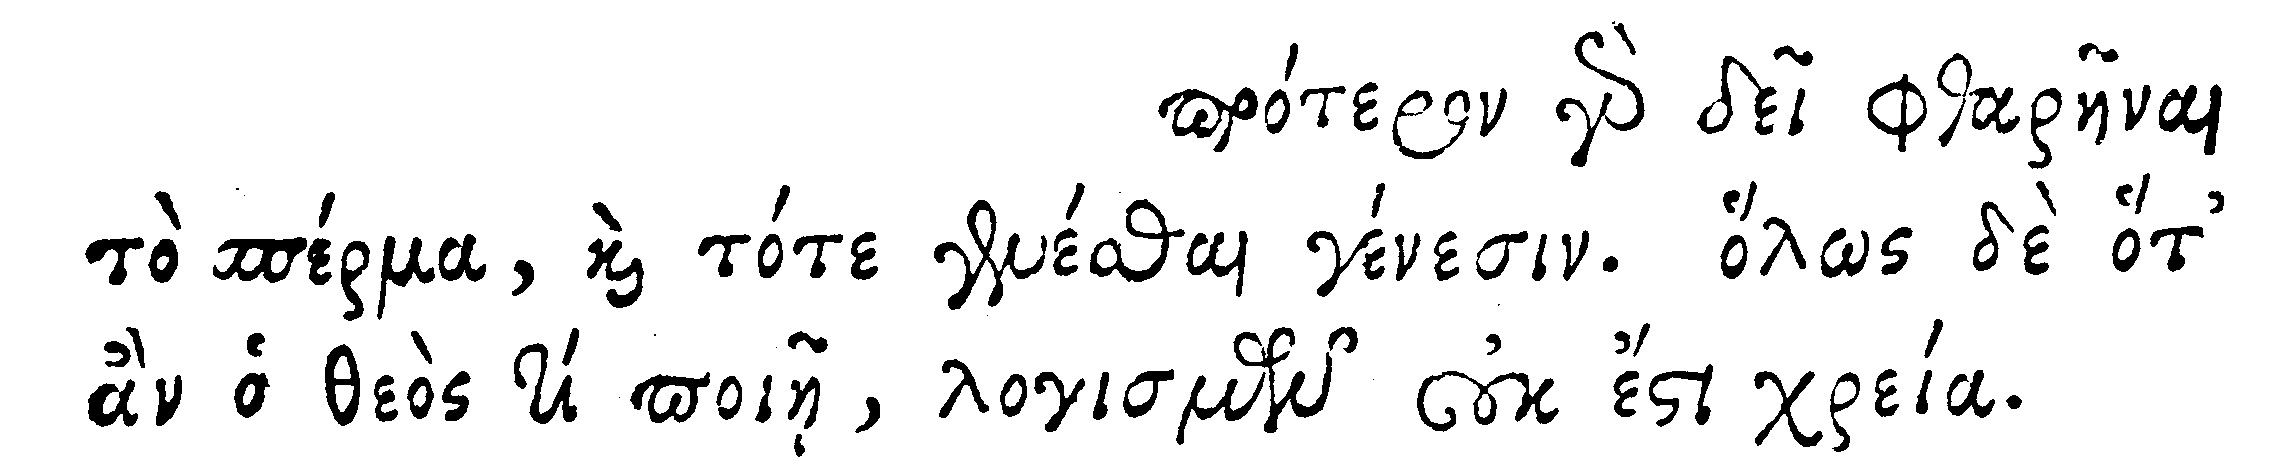 πρότερον γὰρ δεῖ φθαρῆναι
τὸ σπέρμα, καὶ τότε γενέσθαι γένεσιν. ὅλως δὲ ὅτ’
ἂν ὁ θεὸς τί ποιῇ, λογισμῶν οὐκ ἔστι χρεία.